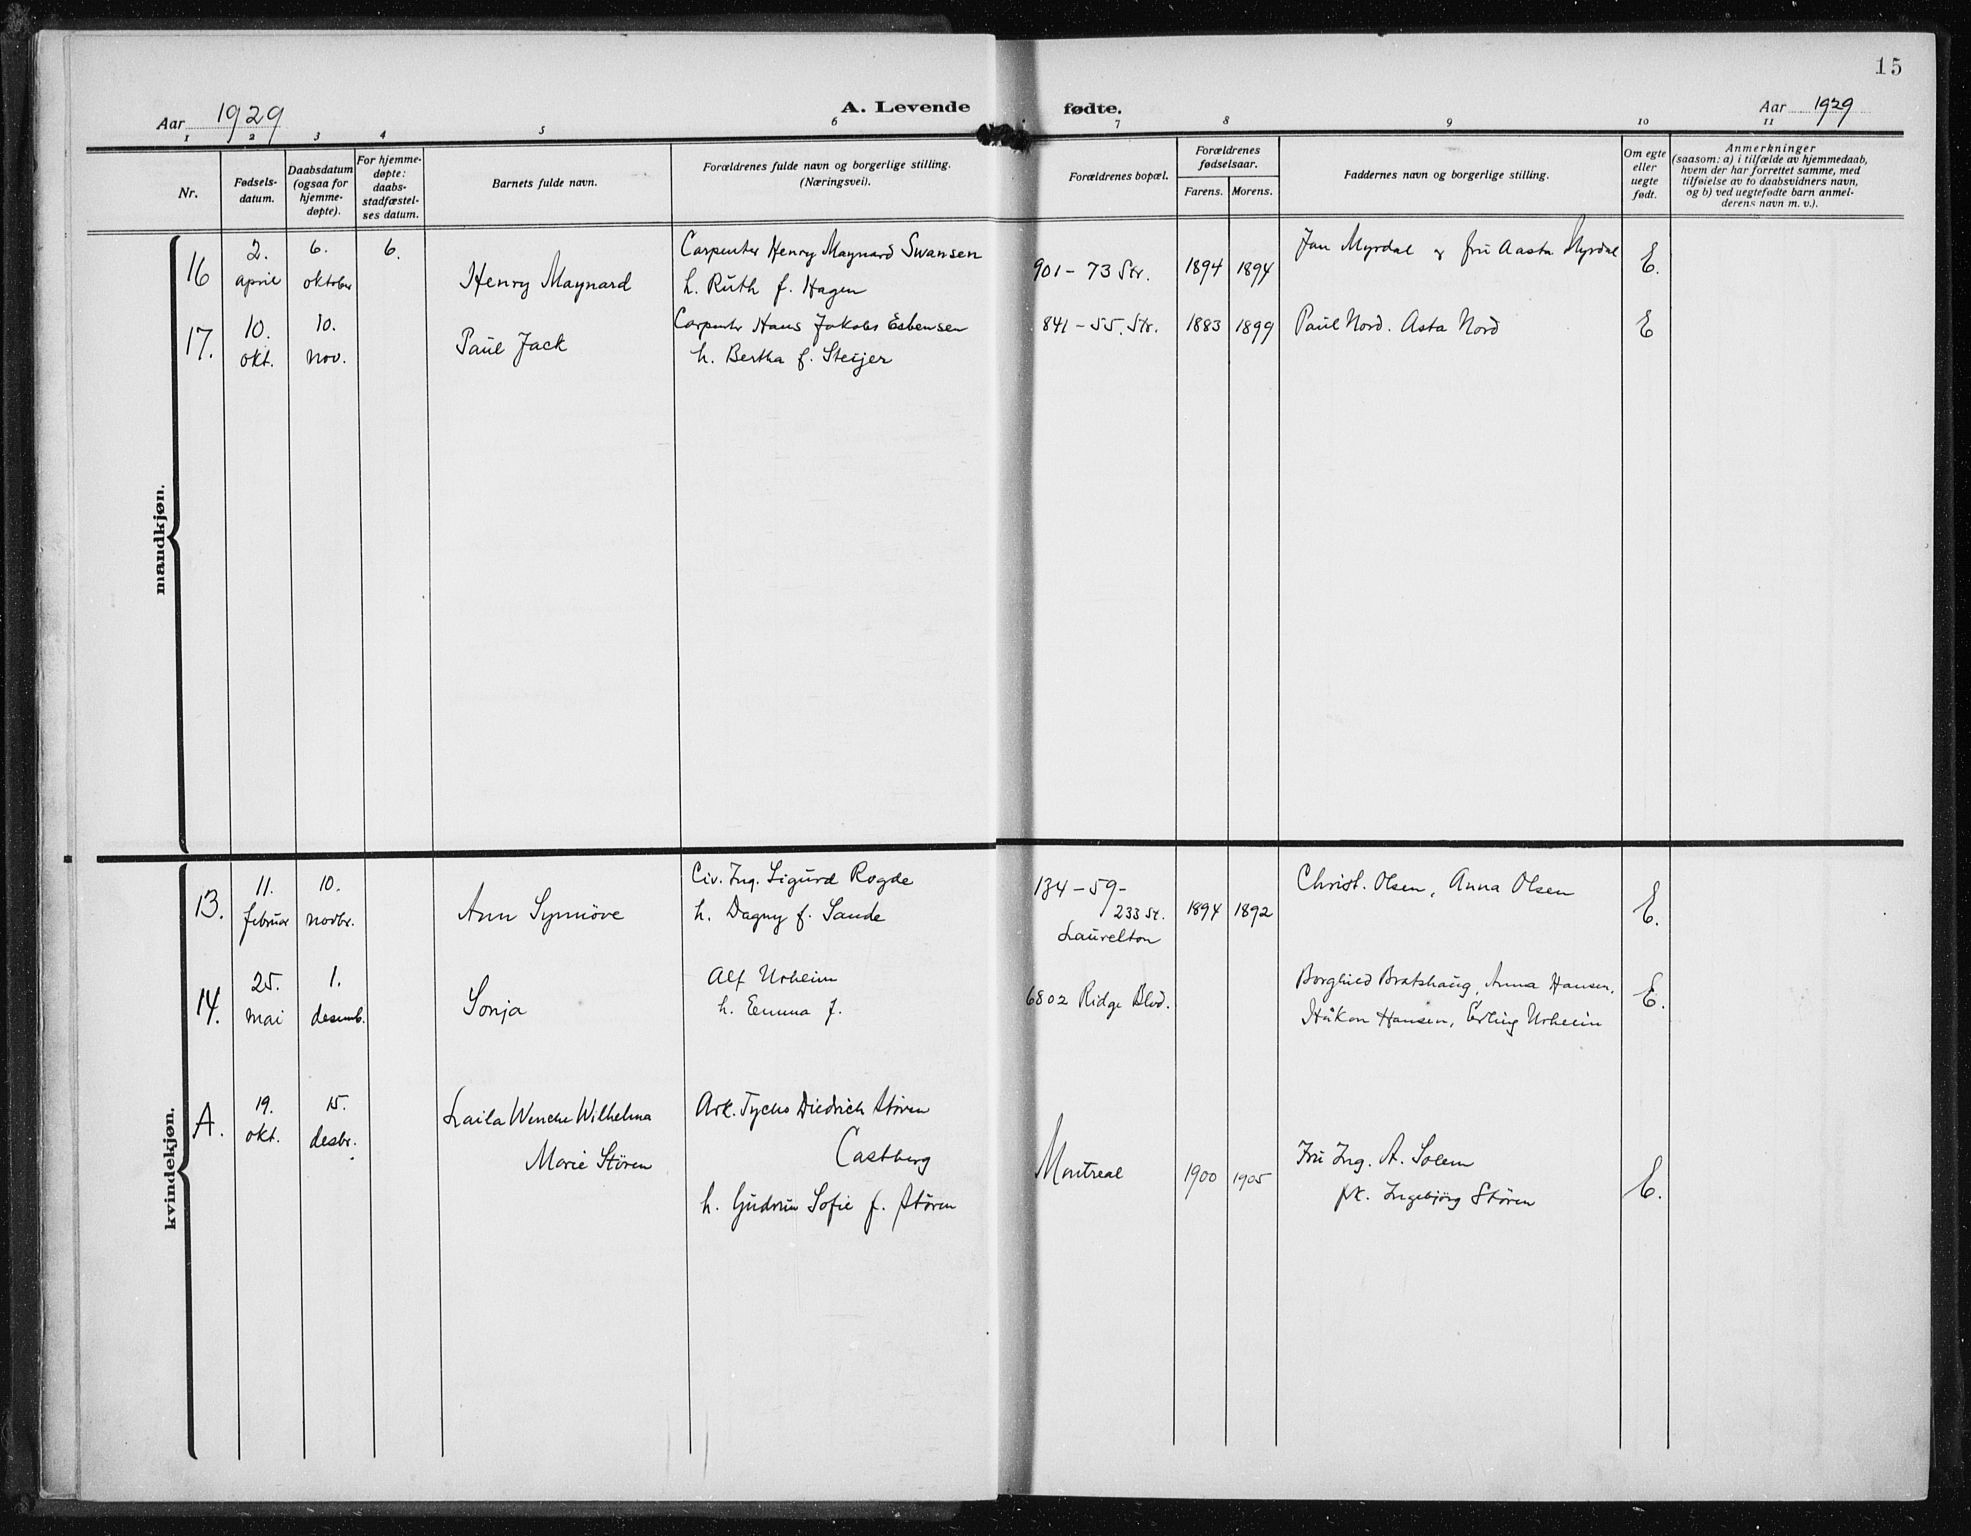 15
Aar 1929
A. Levende fødte.
Aar 1929
1 2 3 4 5 6 7 8 9 10 11
Nr.
Fødsels-
datum.
Daabsdatum
(ogsaa for
hjemme-
døpte).
For hjemme-
døpte:
daabs-
stadfæstel-
ses datum.
Barnets fulde navn.
Forældrenes fulde navn og borgerlige stilling.
(Næringsvei).
Forældrenes bopæl.
Forældrenes
fødselsaar.
Farens. Morens.
Faddernes navn og borgerlige stilling.
Om egte
eller
uegte
født.
Anmerkninger
(saasom: a) i tilfælde av hjemmedaab,
hvem der har forrettet samme, med
tilføielse av to daabsvidners navn,
og b) ved uegtefødte barn anmel-
derens navn m. v.).
mandkjøn.
16
2.
april
6.
oktober
6.
Henry Maynard
Carpenter Henry Maynard Swansen
h. Ruth f. Hagen
901 - 73 Str.
1894 1894
Jan Myrdal og fru Aasta Myrdal
E.
17.
10.
okt.
10.
nov.
Paul Jack
Carpenter Hans Jakobs Esbensen
h. Bertha f. Steijer
841 - 55. Str.
1883 1899
Paul Nord. Asta Nord
E
kvindekjøn.
13.
11.
februar
10.
novbr.
Ann Synnöve
Civ. Ing. Sigurd Rogde
h. Dagny f. Sande
134 - 59 -
233 St.
Laurelton
1894 1892
Christ. Olsen, Anna Olsen
E.
14.
25.
mai
1.
desemb.
Sonja
Alf Urheim
h. Emma f.
6802 Ridge Blvd.
Borghild Bratshaug, Anna Hansen,
Håkon Hansen, Erling Urheim
E.
A.
19.
okt.
15.
desbr.
Laila Wenche Wilhelma
Marie Stören
Ark. Tycho Diedrich Stören
Castberg
h. Gudrun Sofie f. Stören
Montreal
1900 1905
Fru Ing. A. Solem
frk. Ingebjörg Stören
E.